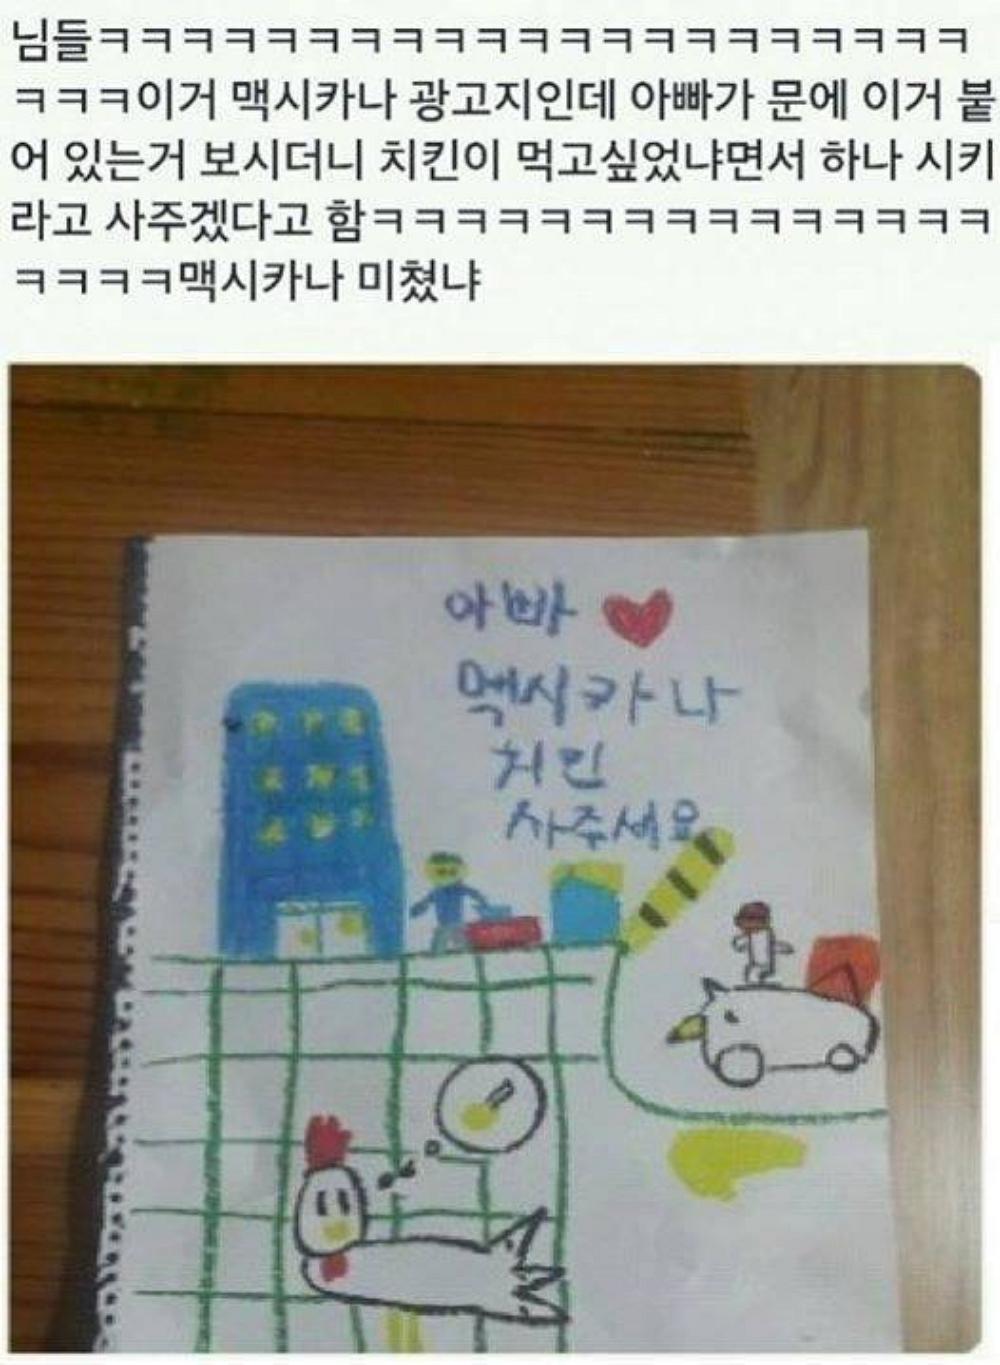 님들ㅋㅋㅋㅋㅋㅋㅋㅋㅋㅋㅋㅋㅋㅋㅋㅋㅋㅋㅋㅋㅋ
ㅋㅋㅋ이거 맥시카나 광고지인데 아빠가 문에 이거 붙
어 있는거 보시더니 치킨이 먹고싶었냐면서 하나 시키
라고 사주겠다고 함ㅋㅋㅋㅋㅋㅋㅋㅋㅋㅋㅋㅋㅋㅋㅋ
ㅋㅋㅋㅋ맥시카나 미쳤냐
아빠 ♥
멕시카나
치킨
사주세요